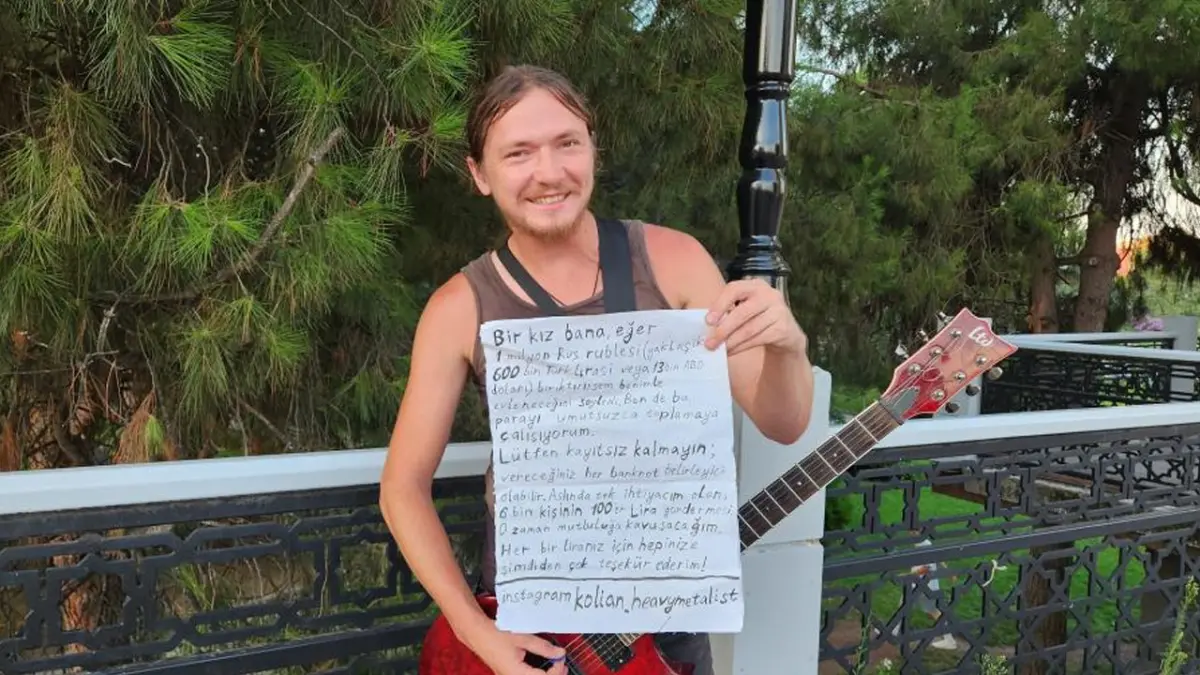 Bir kız bana, eğer
1 milyon Rus rublesi (yaklaşık
600 bin Türk Lirası veya 13 bin ABD
doları) biriktirirsem benimle
evleneceğini söyledi. Ben de bu
parayı umutsuzca toplamaya
çalışıyorum.
Lütfen kayıtsız kalmayın;
vereceğiniz her banknot belirleyici
olabilir. Aslında tek ihtiyacım olan,
6 bin kişinin 100'er Lira göndermesi,
O zaman mutluluğa kavuşacağım.
Her bir liranız için hepinize
şimdiden çok teşekür ederim!
instagram kolian_heavymetalist
Ltd